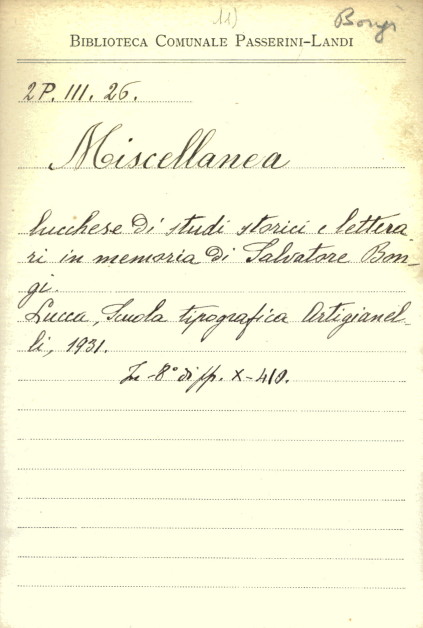 11) Bongi
BIBLIOTECA COMUNALE PASSERINI-LANDI
2P. III. 26.
Miscellanea
lucchese di studi storici e lettera
ri in memoria di Salvatore Bon-
gi.
Lucca, Scuola tipografica Artigianel-
li, 1931.
In-8° di pp. X-410.